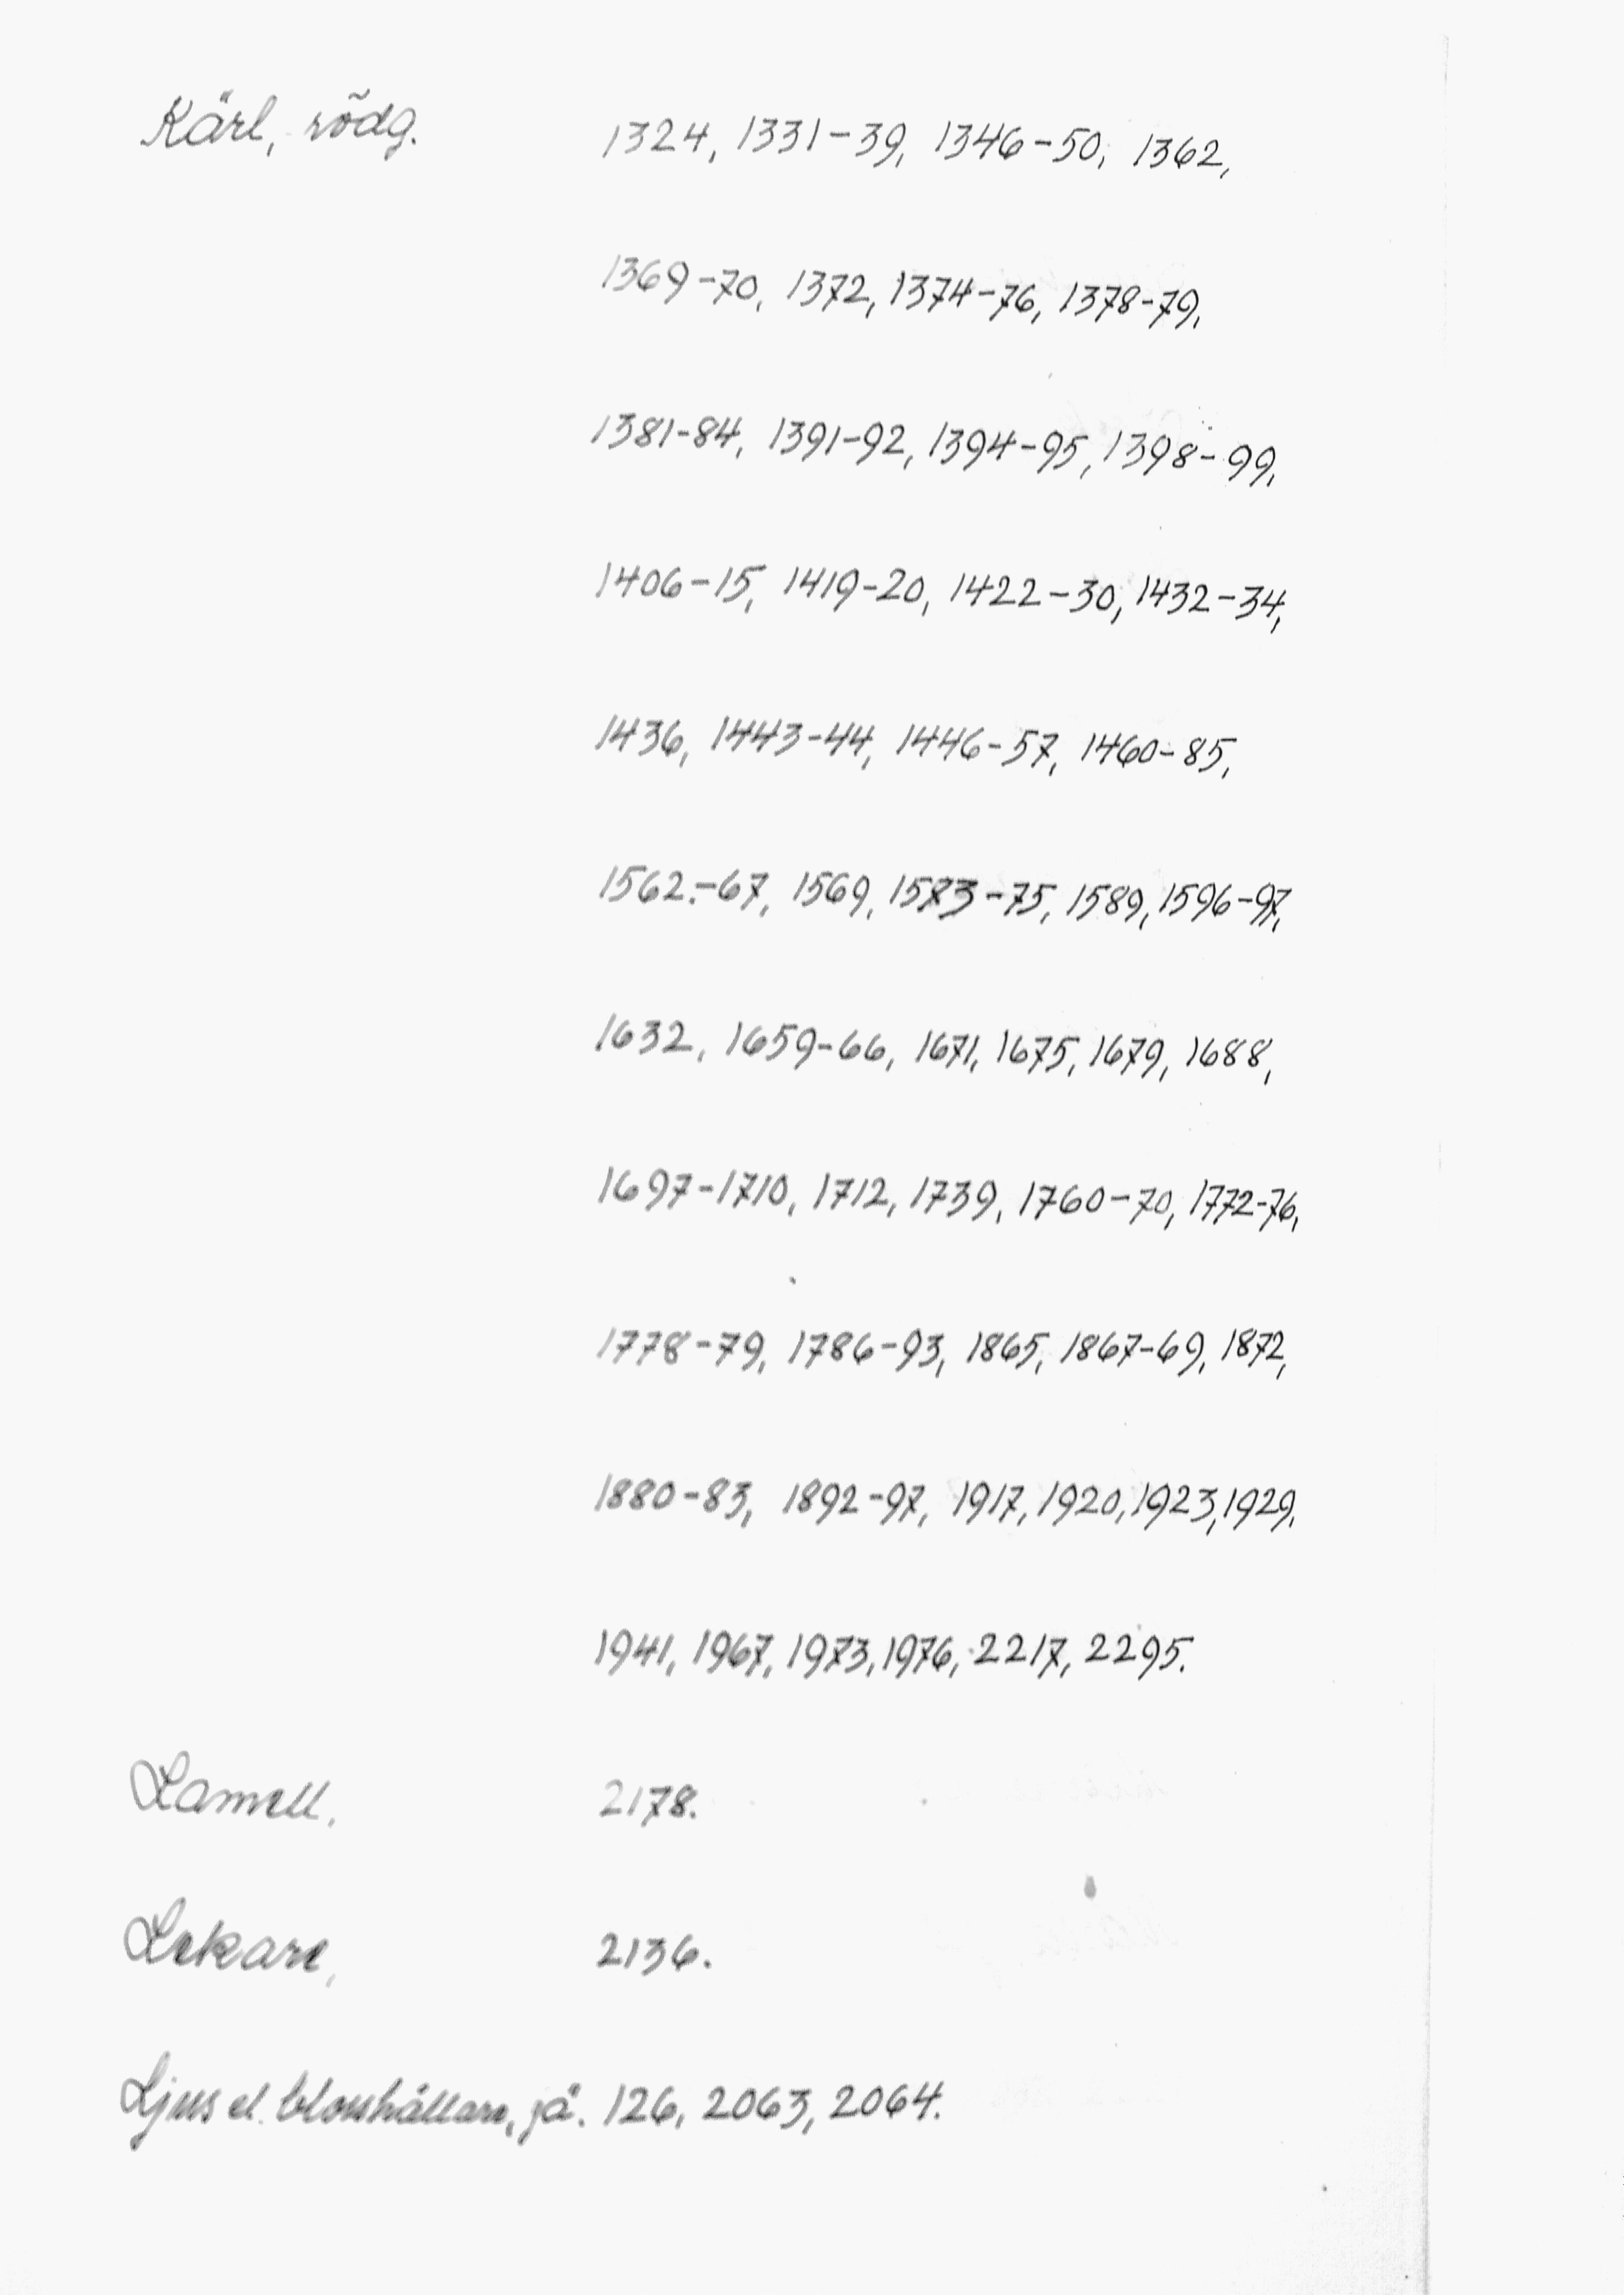 Kärl, rödg. 1324, 1331-39, 1346-50, 1362,
1369-70, 1372, 1374-76, 1378-79,
1381-84, 1391-92, 1394-95, 1398-99,
1406-15, 1419-20, 1422-30, 1432-34,
1436, 1443-44, 1446-57, 1460-85,
1562-67, 1569, 1573-75, 1589, 1596-97,
1632, 1659-66, 1671, 1675, 1679, 1688,
1697-1710, 1712, 1739, 1760-70, 1772-76,
1778-79, 1786-93, 1865, 1867-69, 1872,
1880-83, 1892-97, 1917, 1920, 1923, 1929,
1941, 1967, 1973, 1976, 2217, 2295.
Lamell, 2178.
Lekare, 2136.
Ljus el. blosshållare, jä. 126, 2063, 2064.